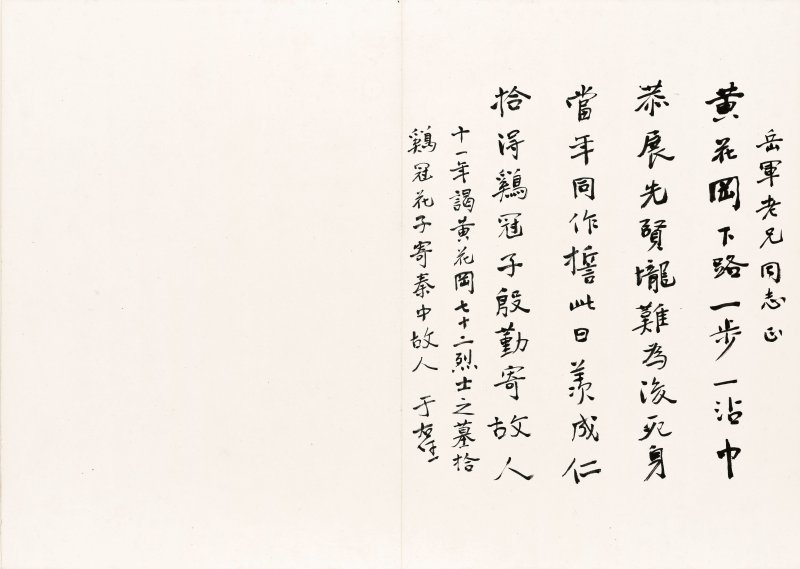 岳軍老兄同志正
黃花岡下路一步一沾巾
恭展先賢壠難為後死身
當年同作誓此日羨成仁
拾得鷄冠子殷勤寄故人
十一年謁黃花岡七十二烈士之墓拾
鷄冠花子寄秦中故人 于右任